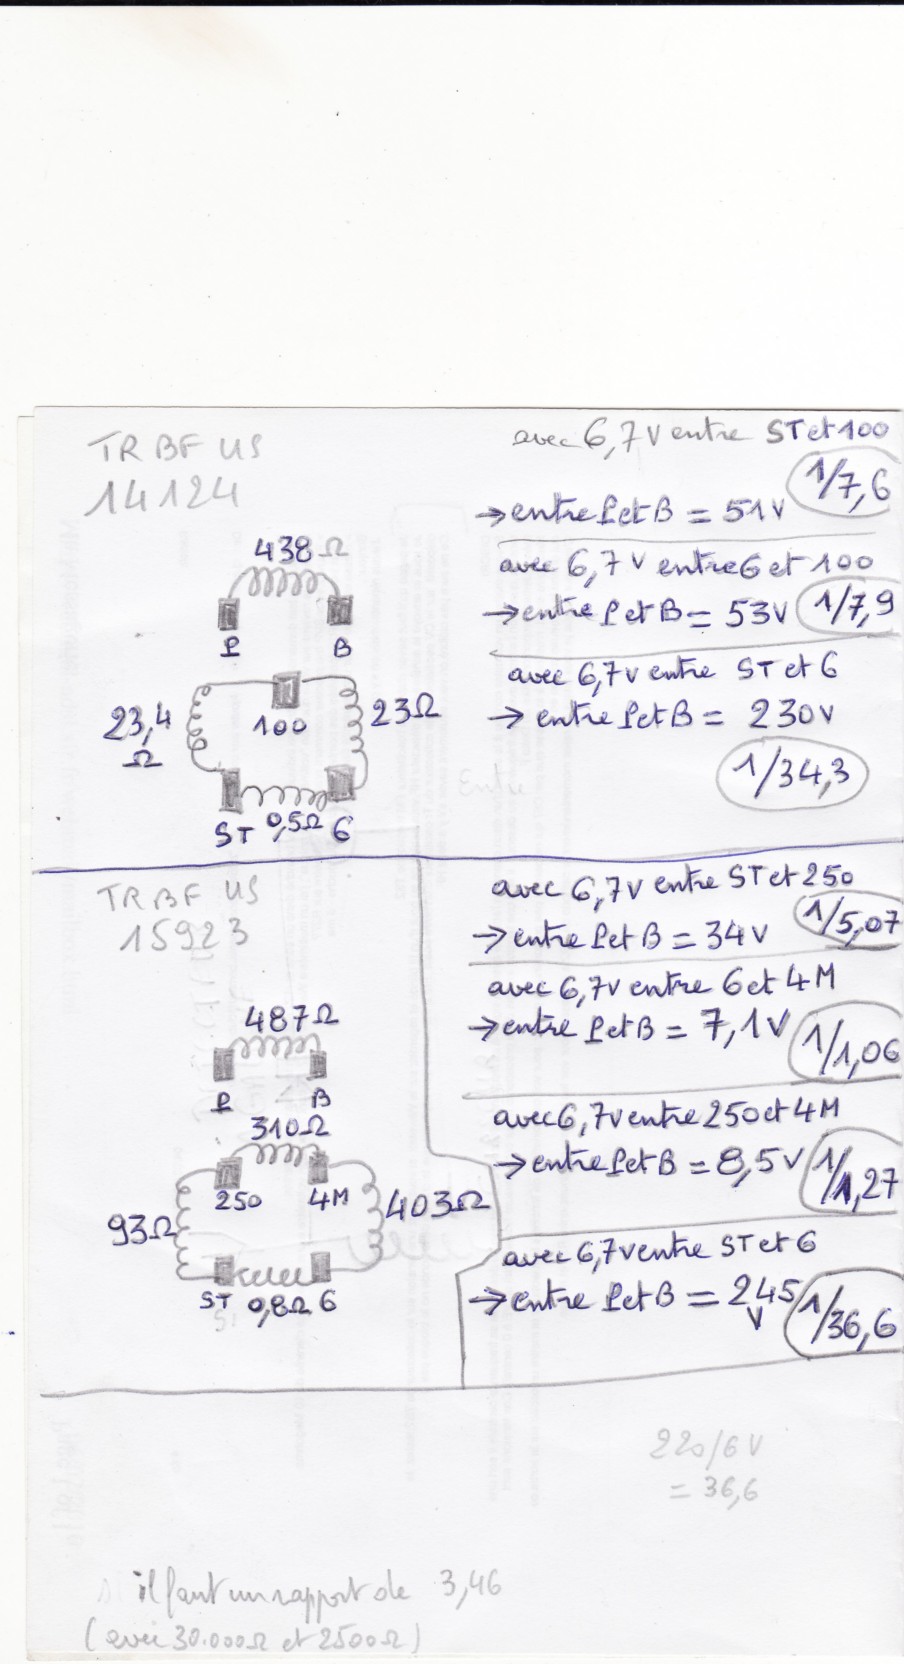 TR BF US
14124
438 Ω
P
B
23,4
Ω
100
23Ω
ST
0,5Ω
6
avec 6,7 V entre ST et 100
1/7,6
→ entre P et B = 51 V
avec 6,7 V entre 6 et 100
→ entre P et B = 53 V
1/7,9
avec 6,7 V entre ST et 6
→ entre P et B = 230 V
1/34,3
Entre
TR BF US
15923
487Ω
P
B
310Ω
250
4M
93Ω
403Ω
ST
0,8Ω
6
avec 6,7 V entre ST et 250
1/5,07
→ entre P et B = 34 V
avec 6,7 V entre 6 et 4M
→ entre P et B = 7,1 V
1/1,06
avec 6,7 V entre 250 et 4M
→ entre P et B = 8,5 V
1/1,27
avec 6,7 V entre ST et 6
→ entre P et B = 245
V
1/36,6
220/6 V
= 36,6
il faut un rapport de 3,46
(avec 30.000Ω et 2500Ω)